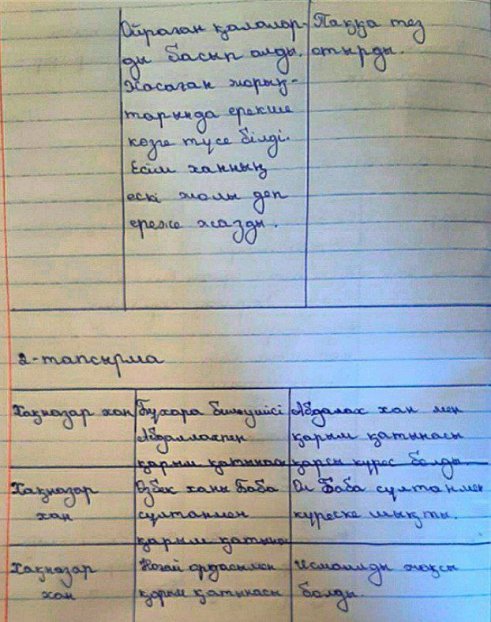 Ойраған қалалар- Таққа тез
ды басып алды. отырды.
Жасаған жорық-
тарында ерекше
көзге түсе білді.
Есім ханның
ескі жолы деп
ереже жазды.
2-тапсырма
Хақназар хан Бұхара билеушісі Абдалах хан мен
Абдаллахпен қарым қатынасы
қарым қатынасы қарсы күрес болды.
Хақназар Өзбек ханы Баба Ол Баба сұлтанмен
хан сұлтанмен күреске шықты.
қарым қатынас
Хақназар Ноғай ордасымен Исмаилды жақсы
хан қарым қатынасы болды.